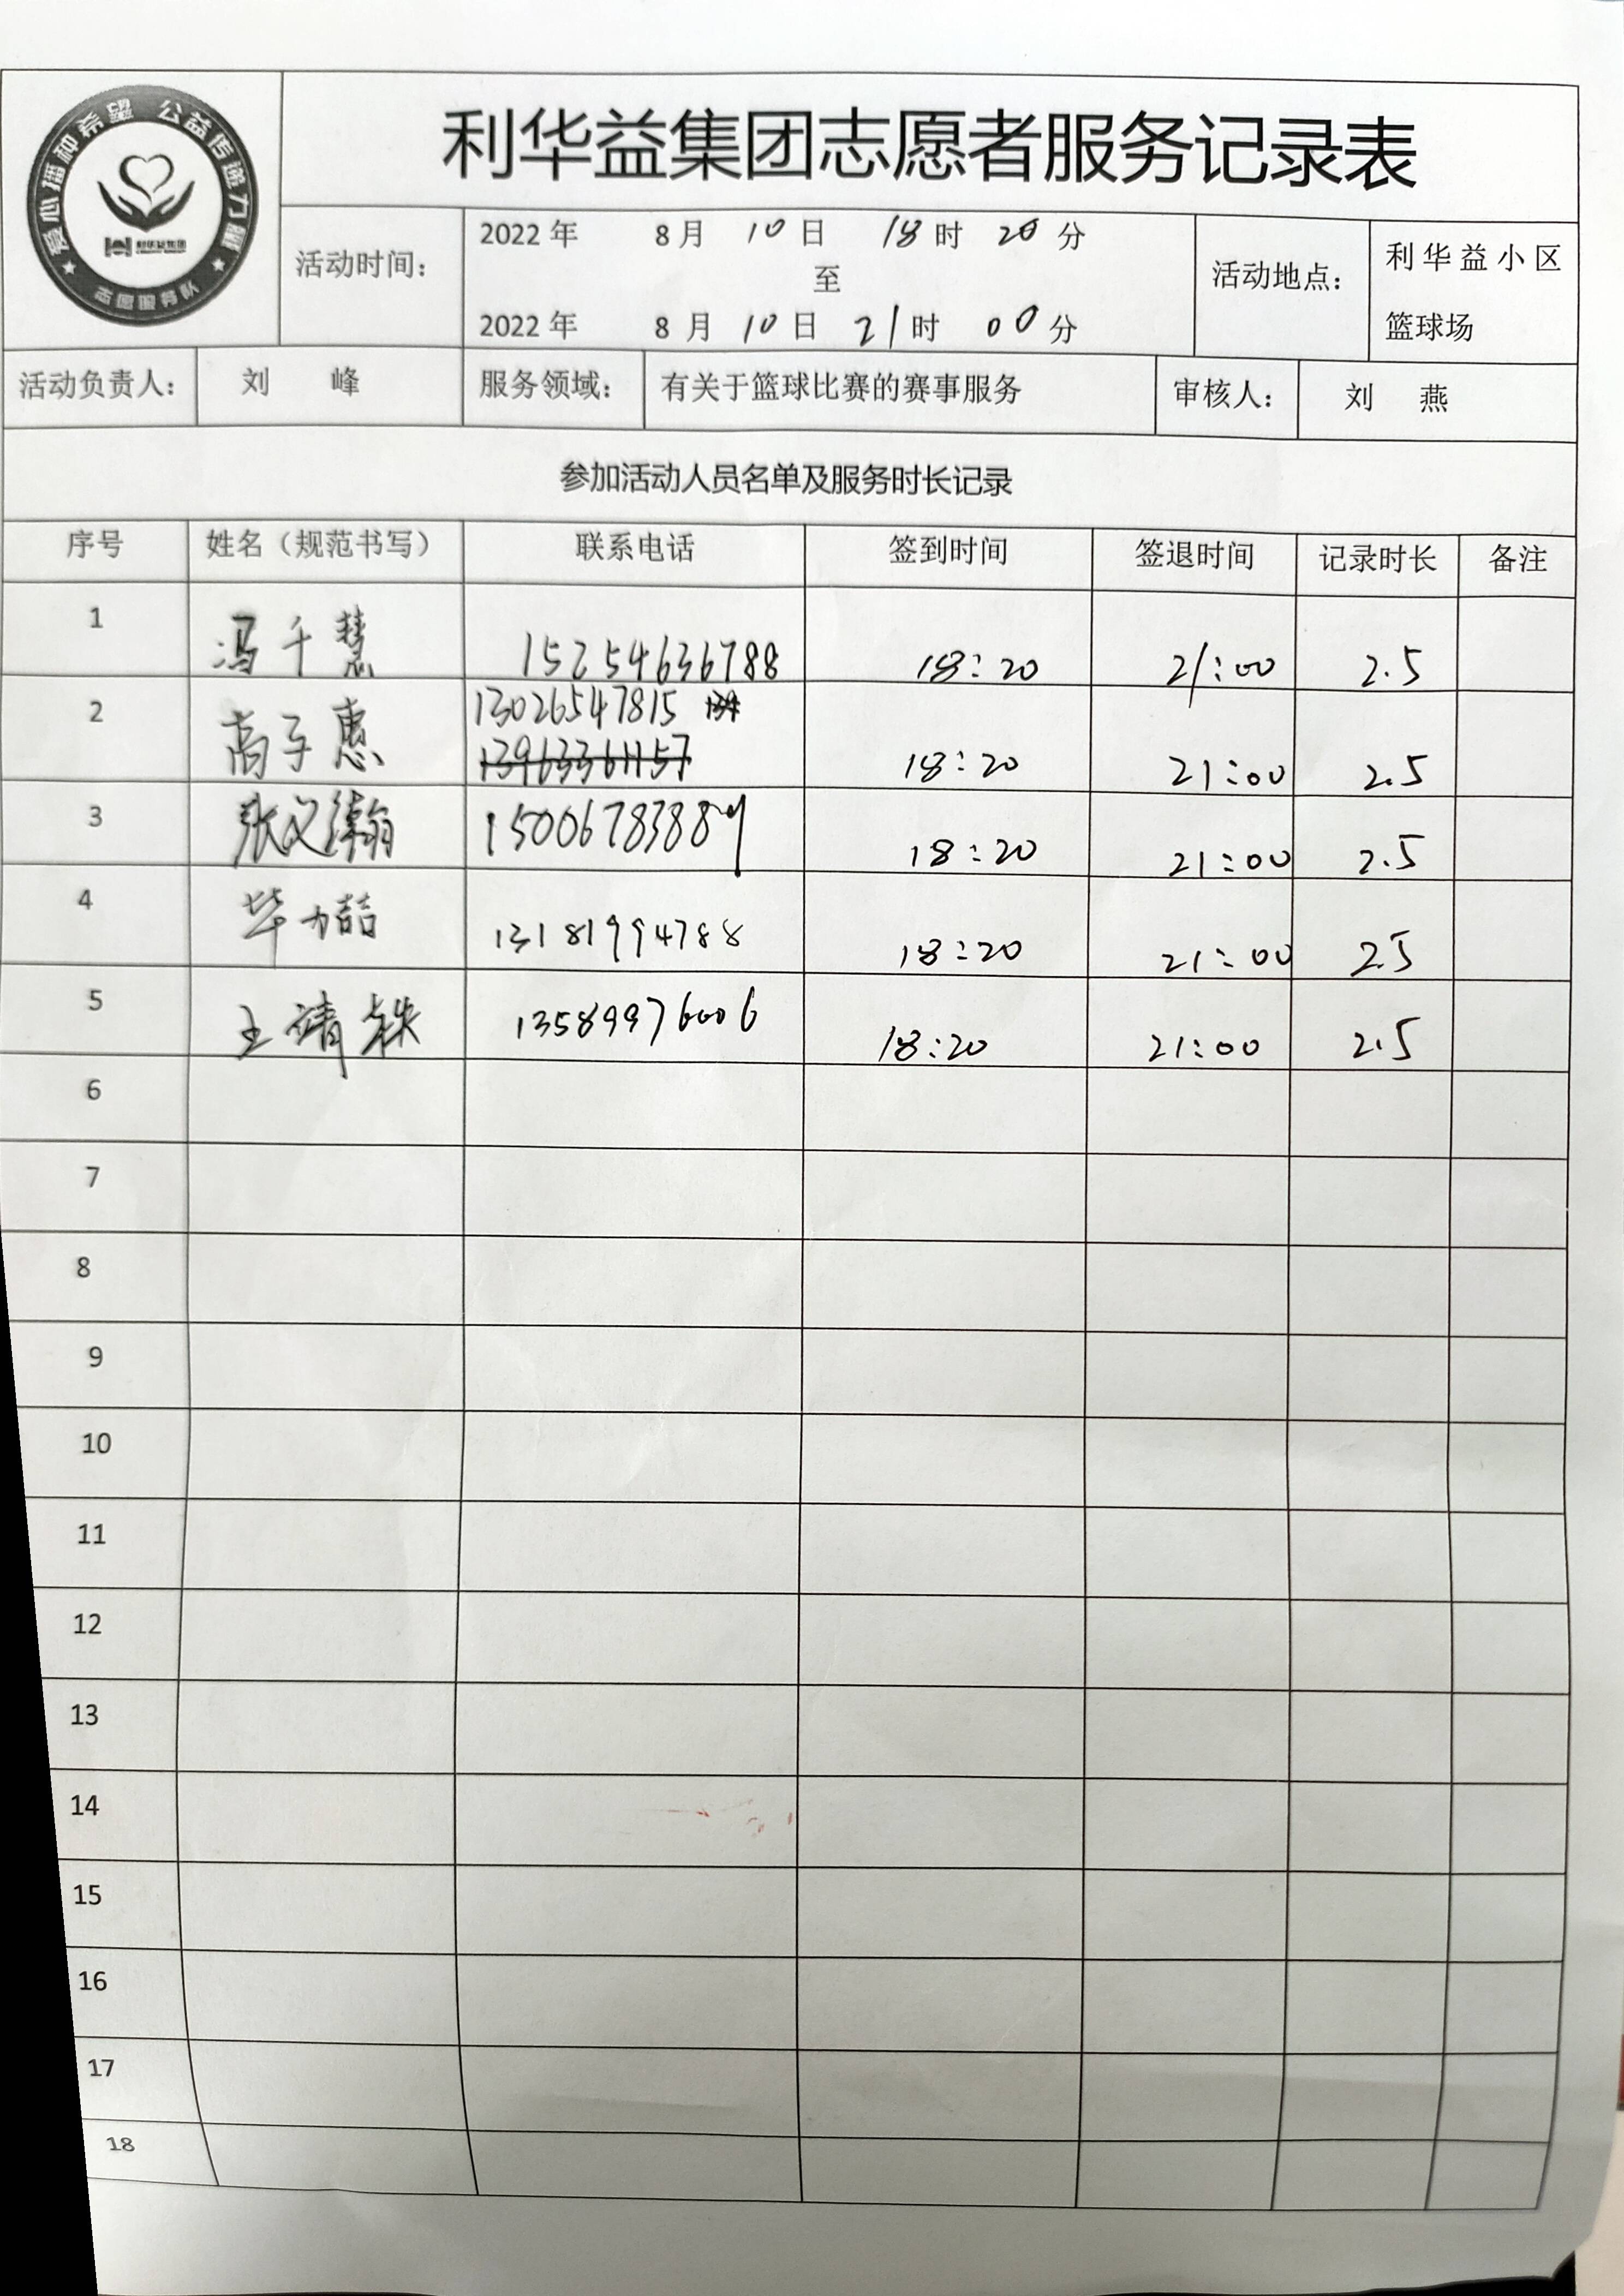 爱心播种希望 公益传递力量
利华益集团
志愿服务队
利华益集团志愿者服务记录表
活动时间：
2022 年 8 月 10 日 18 时 20 分
至
2022 年 8 月 10 日 21 时 00 分
活动地点：
利华益小区
篮球场
活动负责人： 刘 峰 服务领域： 有关于篮球比赛的赛事服务 审核人： 刘 燕
参加活动人员名单及服务时长记录
序号 姓名（规范书写） 联系电话 签到时间 签退时间 记录时长 备注
1 冯千慧 15254636788 18:20 21:00 2.5
2 高子惠 13026547815 18:20 21:00 2.5
13963361157
3 张义瀚 15006783889 18:20 21:00 2.5
4 毕 13181994788 18:20 21:00 2.5
5 王靖 13589976006 18:20 21:00 2.5
6
7
8
9
10
11
12
13
14
15
16
17
18